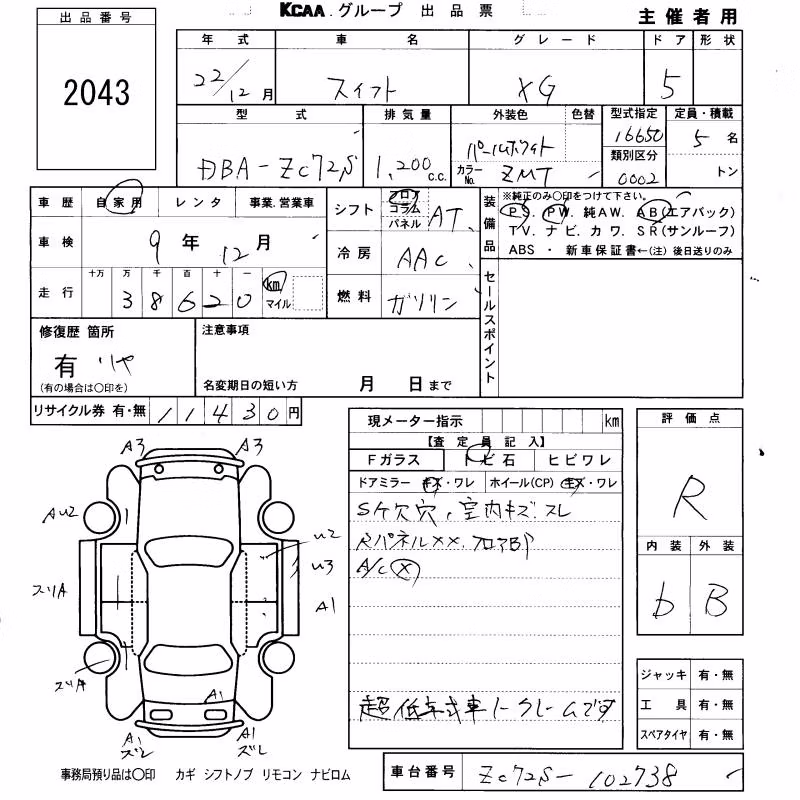 出品番号
2043
KCAA.グループ 出品票
主催者用
年式 車名 グレード ドア 形状
22/12月 スイフト XG 5
型式 排気量 外装色 色替 型式指定 定員・積載
DBA-ZC72S 1,200 c.c. パールホワイト 16650 5名
カラーNo. ZMT 類別区分 0002 トン
車歴 自家用 レンタ 事業.営業車
車検 9年12月
走行 十万 万 千 百 十 一
38620 km マイル
シフト フロア コラム パネル AT
冷房 AAC
燃料 ガソリン
装備品 ※純正のみ〇印をつけて下さい。
PS. PW. 純AW. AB(エアバック)
TV. ナビ. カワ. SR(サンルーフ)
ABS ・ 新車保証書←(注) 後日送りのみ
セールスポイント
修復歴 箇所
有 リヤ
(有の場合は〇印を)
注意事項
名変期日の短い方 月 日まで
リサイクル券 有・無 11430円
現メーター指示 km
【査定員記入】
Fガラス トビ石 ヒビワレ
ドアミラー キズ・ワレ ホイール(CP) キズ・ワレ
Sケ欠穴、室内キズ.スレ
Rパネル××.フロアBP
A/C ×
超低年式車ノークレームです
評価点
R
内装 外装
b B
ジャッキ 有・無
工具 有・無
スペアタイヤ 有・無
A3 A3
AU2
U2
U3
スリA A1
スリA
A1
A1 A1
ズレ ズレ
事務局預り品は〇印 カギ シフトノブ リモコン ナビロム
車台番号 ZC72S-102738